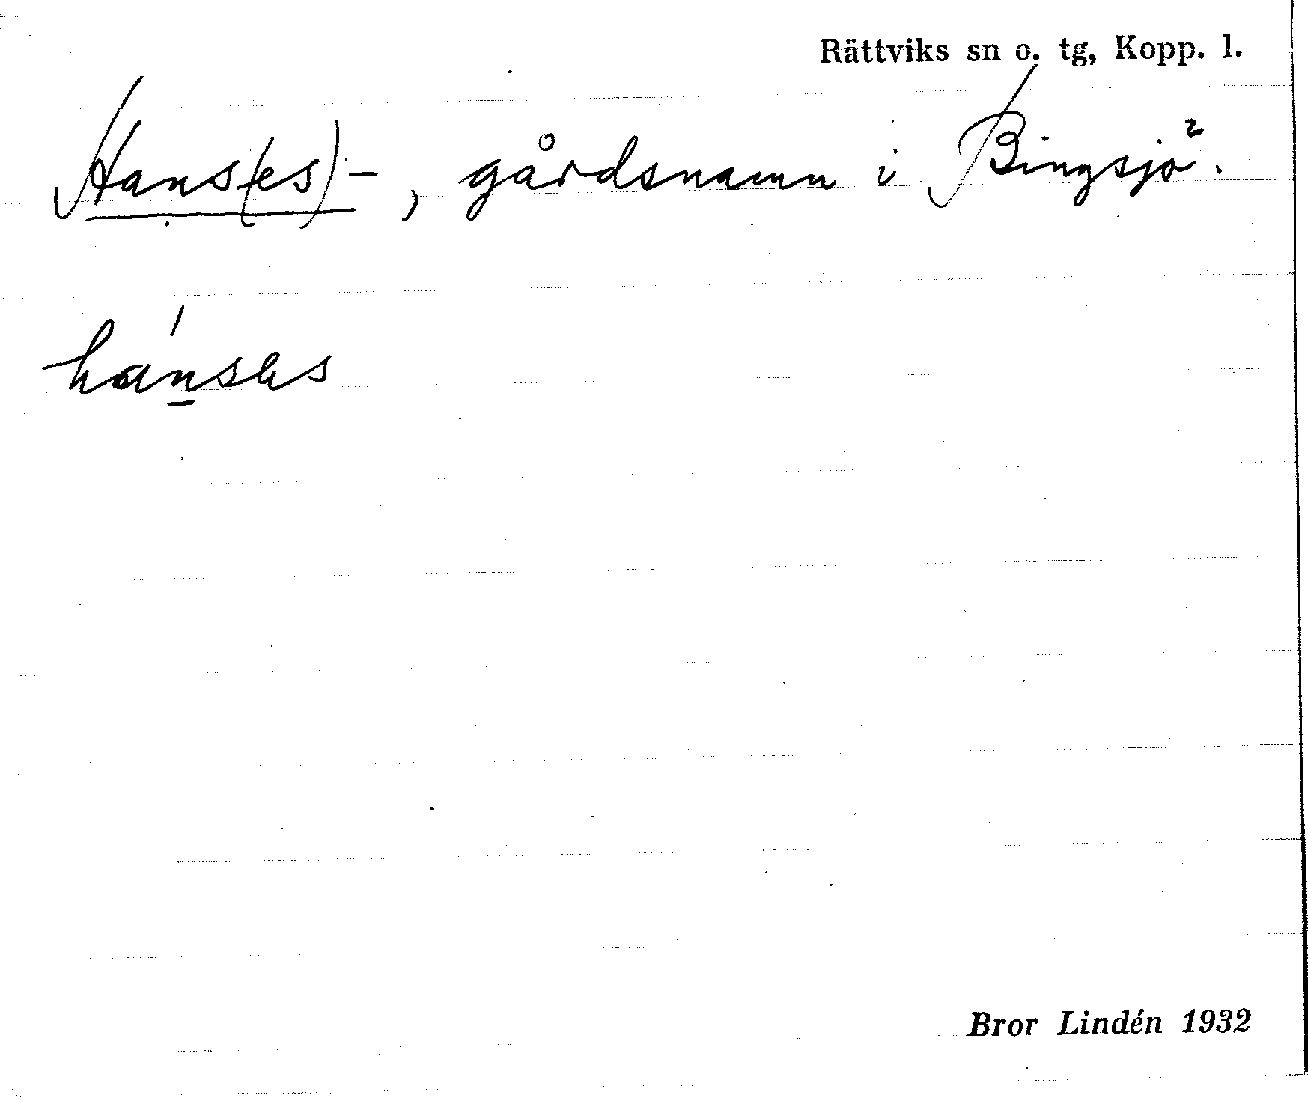 Rättviks sn o. tg, Kopp. l.
Hans(es)-, gårdsnamn i Bingsjö.
Bror Lindén 1932